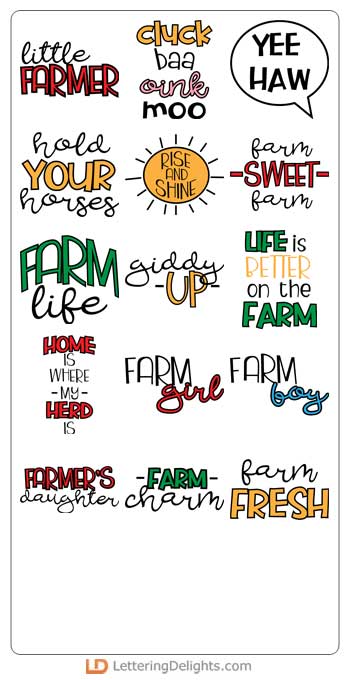 little
FARMER
cluck
baa
oink
moo
YEE
HAW
hold
YOUR
horses
RISE
AND
SHINE
farm
-SWEET-
farm
FARM
life
giddy
-UP-
LIFE is
BETTER
on the
FARM
HOME
IS
WHERE
-MY-
HERD
IS
FARM
girl
FARM
boy
FARMER'S
daughter
-FARM-
charm
farm
FRESH
LD LetteringDelights.com